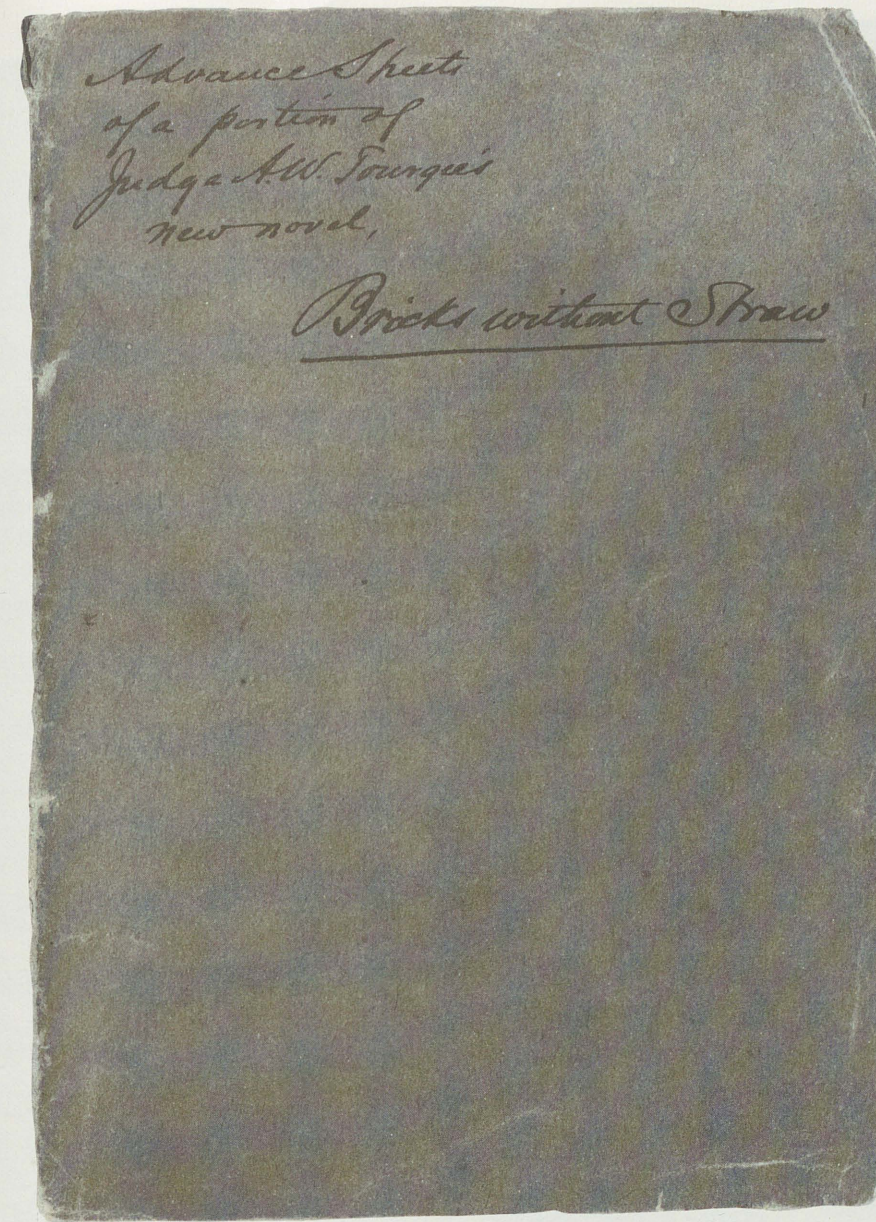 Advance Sheets
of a portion of
Judge A.W. Tourgée's
new novel,
Bricks without Straw